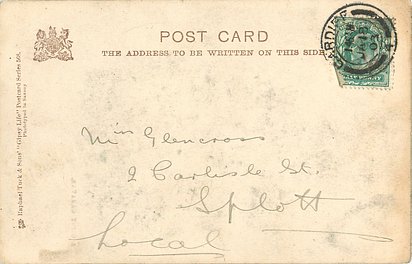 POST CARD
THE ADDRESS TO BE WRITTEN ON THIS SIDE
CARDIFF
Raphael Tuck & Sons' "Gipsy Life" Postcard Series
Miss Glencross
2 Carlisle St.
Splott
Local